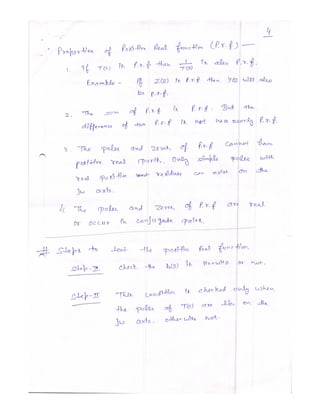 4
Properties of Positive Real function (P.r.f.) —
1. If T(s) is P.r.f then 1/T(s) is also P.r.f.
Example - If Z(s) is P.r.f then Y(s) will also
be P.r.f.
2. The sum of P.r.f is P.r.f. But the
difference of two P.r.f is not P.r.f.
3. The poles and zeros of P.r.f cannot have
positive real parts. Only simple poles with
real positive residues can exist on the
jω axis.
4. The poles and zeros of P.r.f are real
or occur in conjugate pairs.
# Steps to test the positive Real function
Step-I check the in Hurwitz or not.
Step-II This condition is checked only when
the poles of T(s) are lie on the
jω axis. otherwise not.